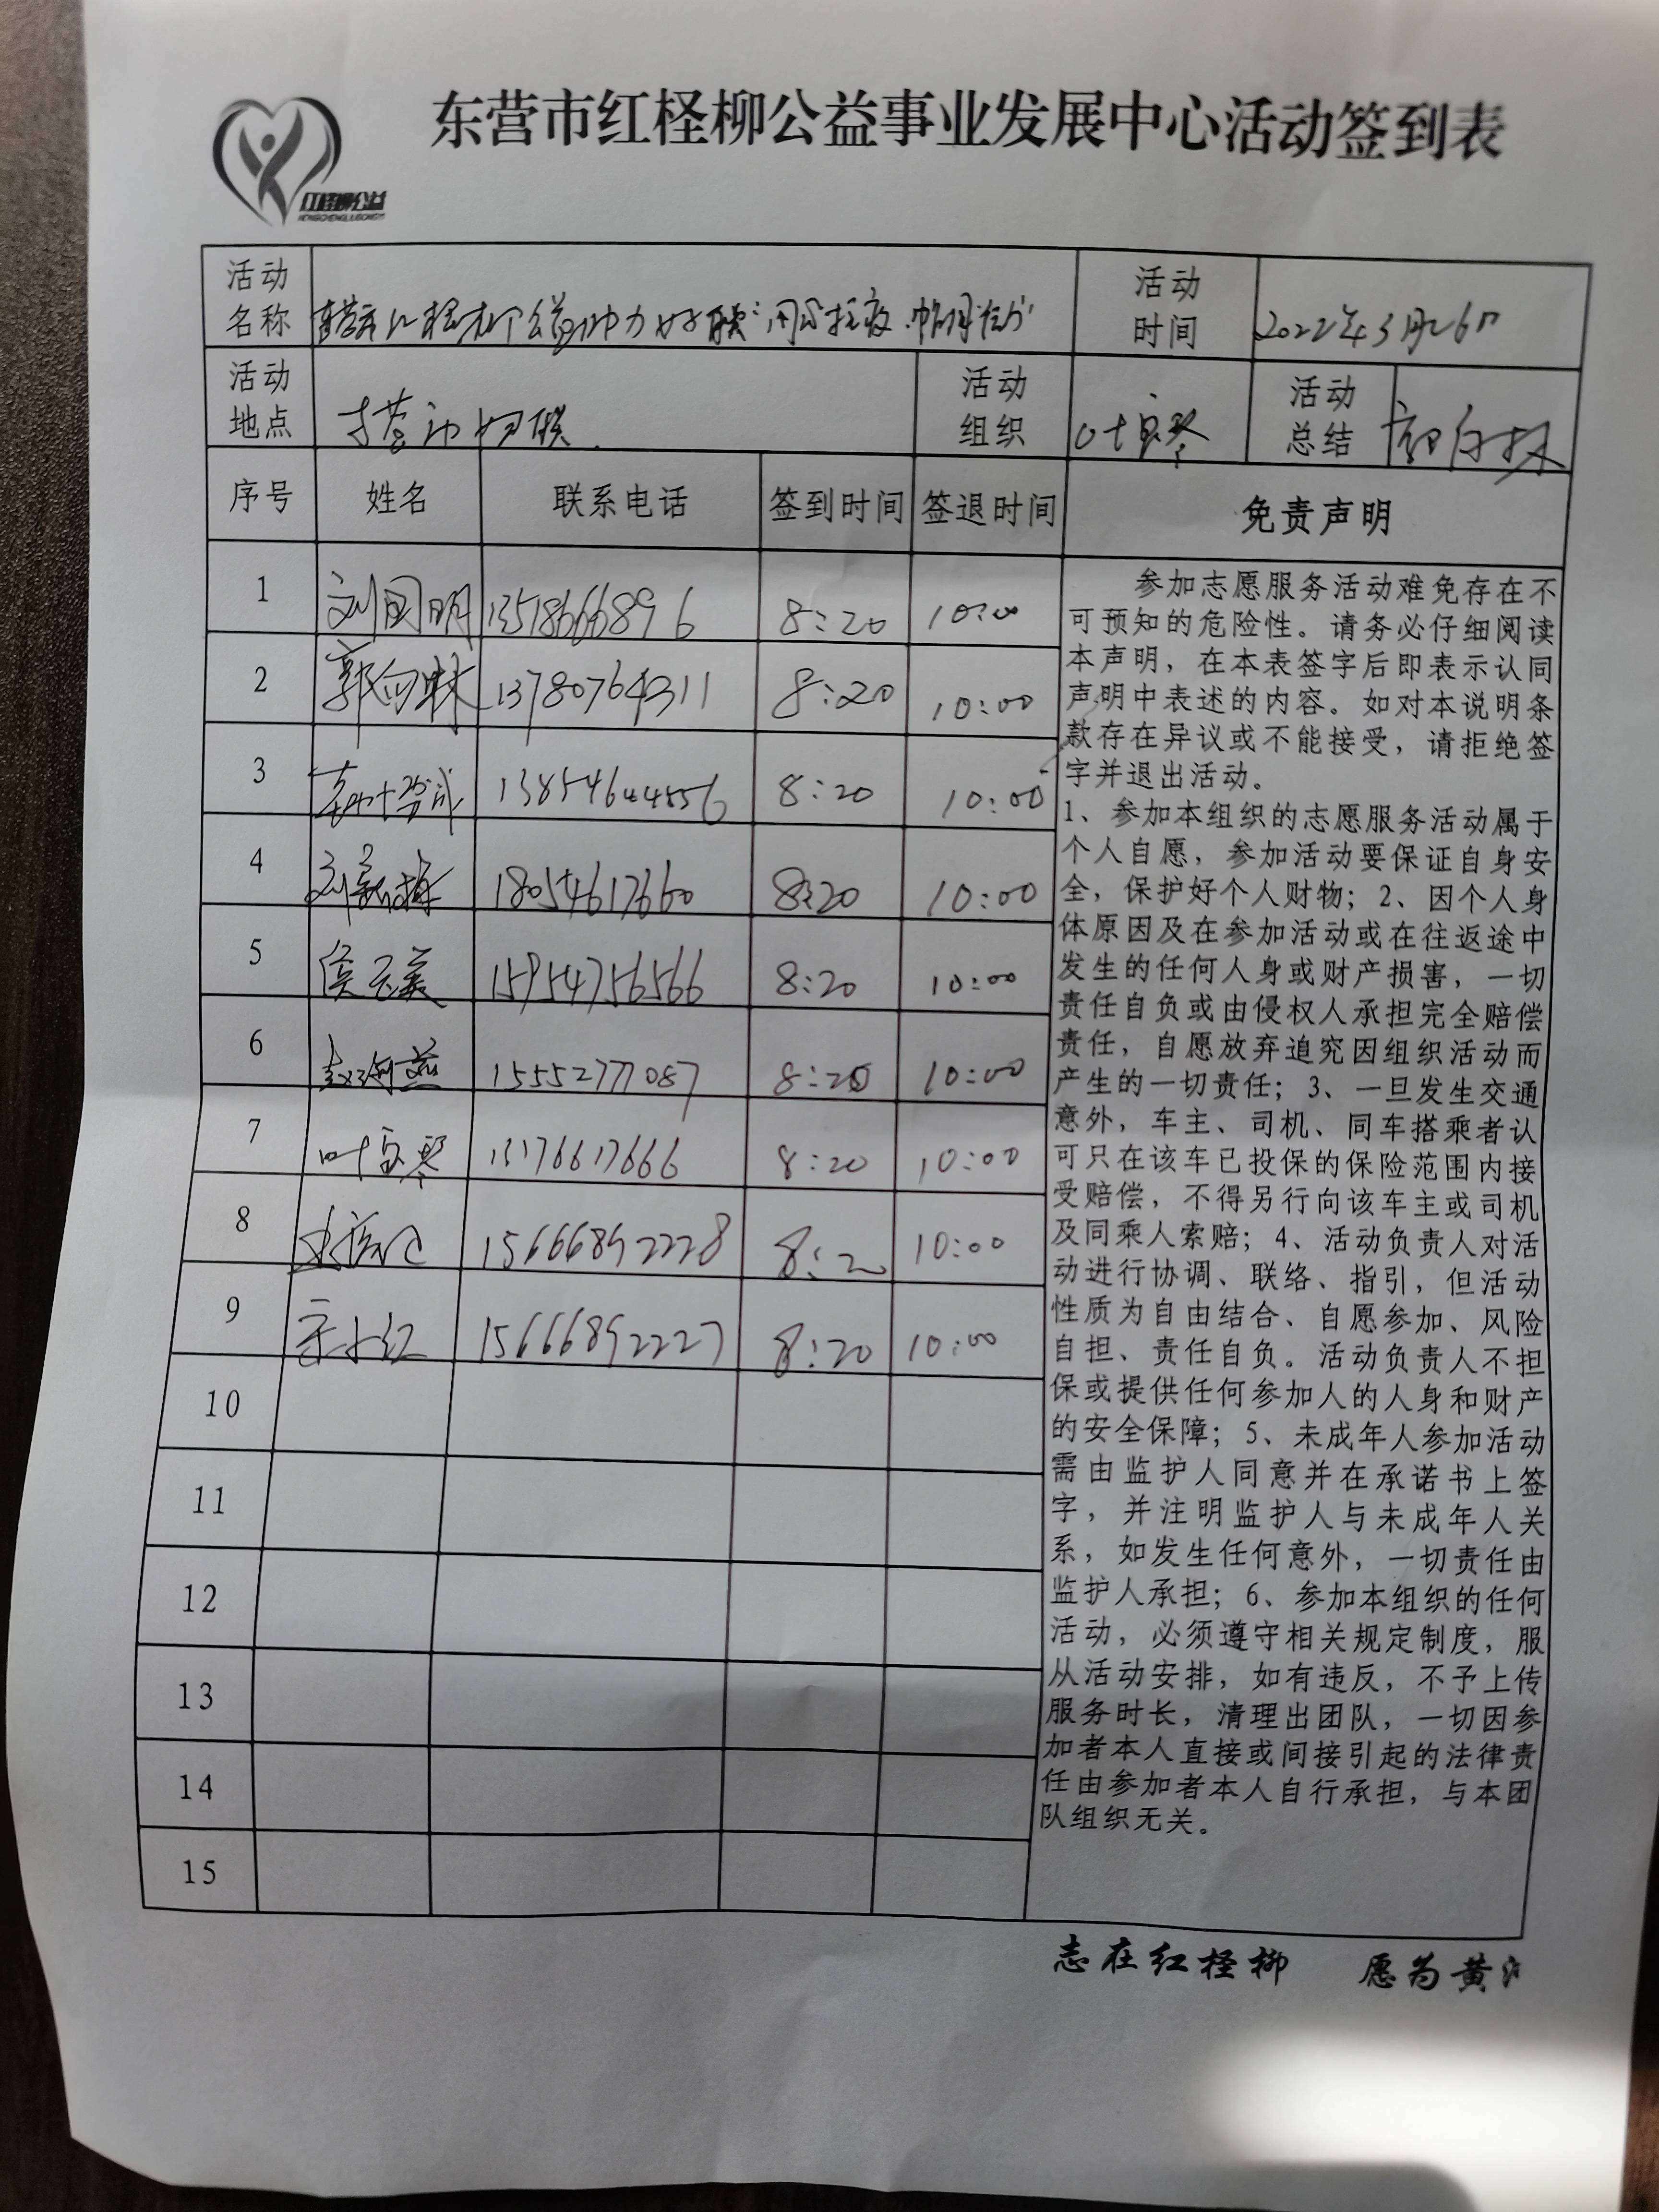 东营市红柽柳公益事业发展中心活动签到表
红柽柳公益
活动名称 活动时间 2022年3月26日
活动地点 东营市妇联 活动组织 活动总结 郭向林
序号 姓名 联系电话 签到时间 签退时间 免责声明
1 刘国明 13518666896 8:20 10:00
2 郭向林 13780764311 8:20 10:00
3 13854644556 8:20 10:00
4 18054617660 8:20 10:00
5 15954756566 8:20 10:00
6 15552777087 8:20 10:00
7 13176617666 8:20 10:00
8 15666892228 8:20 10:00
9 15666892227 8:20 10:00
10
11
12
13
14
15
参加志愿服务活动难免存在不
可预知的危险性。请务必仔细阅读
本声明，在本表签字后即表示认同
声明中表述的内容。如对本说明条
款存在异议或不能接受，请拒绝签
字并退出活动。
1、参加本组织的志愿服务活动属于
个人自愿，参加活动要保证自身安
全，保护好个人财物；2、因个人身
体原因及在参加活动或在往返途中
发生的任何人身或财产损害，一切
责任自负或由侵权人承担完全赔偿
责任，自愿放弃追究因组织活动而
产生的一切责任；3、一旦发生交通
意外，车主、司机、同车搭乘者认
可只在该车已投保的保险范围内接
受赔偿，不得另行向该车主或司机
及同乘人索赔；4、活动负责人对活
动进行协调、联络、指引，但活动
性质为自由结合、自愿参加、风险
自担、责任自负。活动负责人不担
保或提供任何参加人的人身和财产
的安全保障；5、未成年人参加活动
需由监护人同意并在承诺书上签
字，并注明监护人与未成年人关
系，如发生任何意外，一切责任由
监护人承担；6、参加本组织的任何
活动，必须遵守相关规定制度，服
从活动安排，如有违反，不予上传
服务时长，清理出团队，一切因参
加者本人直接或间接引起的法律责
任由参加者本人自行承担，与本团
队组织无关。
志在红柽柳 愿为黄